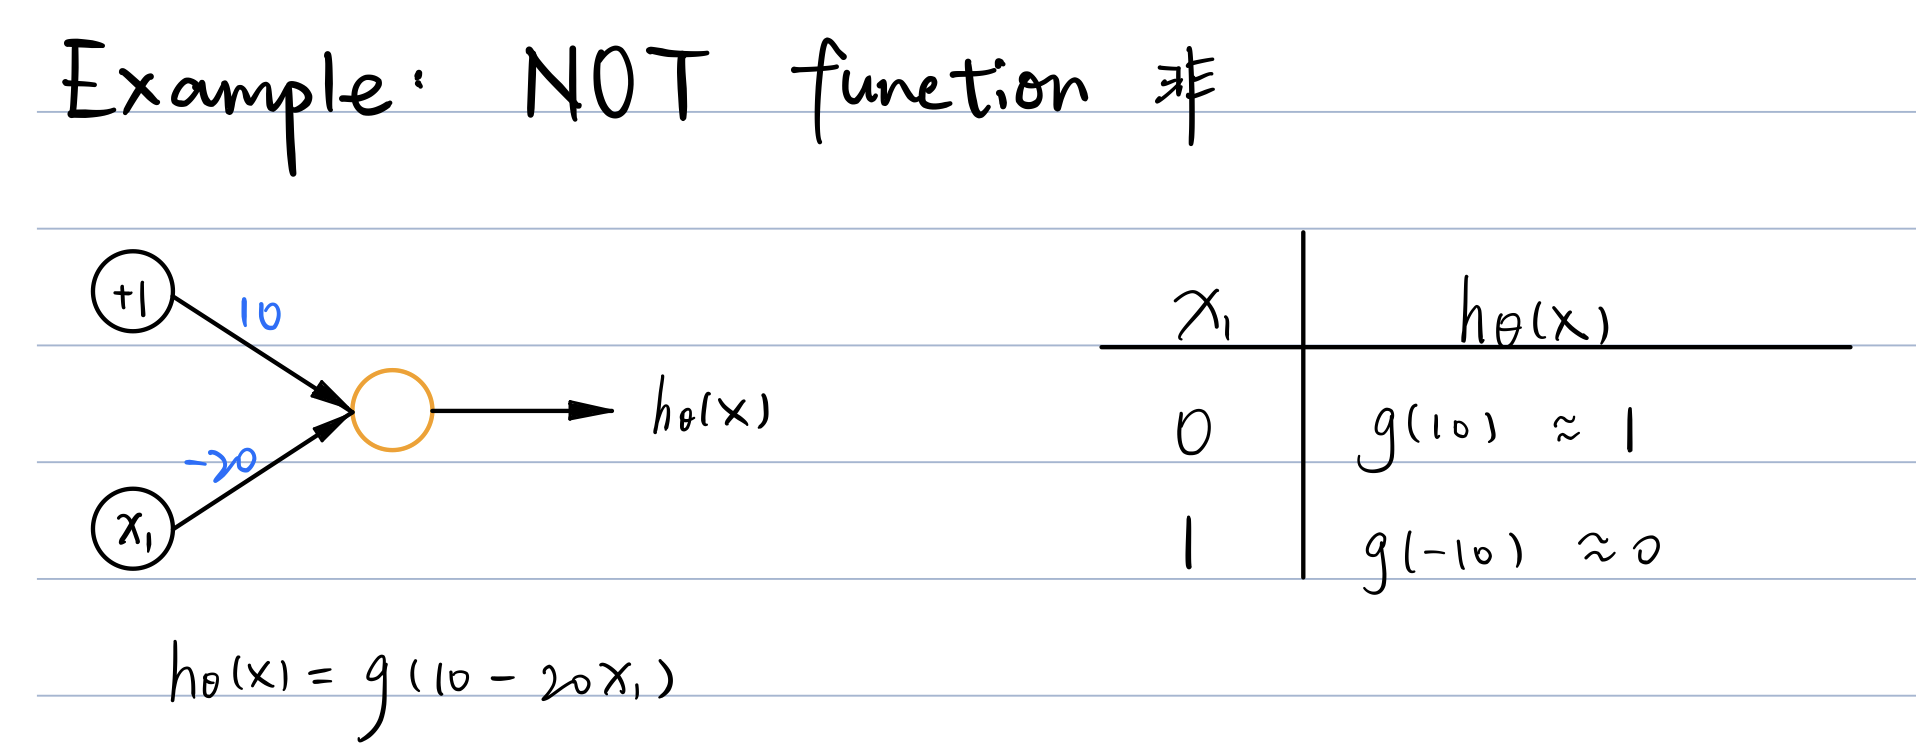 Example: NOT function 非
+1
10
-20
x₁
hθ(x)
x₁ hθ(x)
0 g(10) ≈ 1
1 g(-10) ≈ 0
hθ(x) = g(10 - 20x₁)